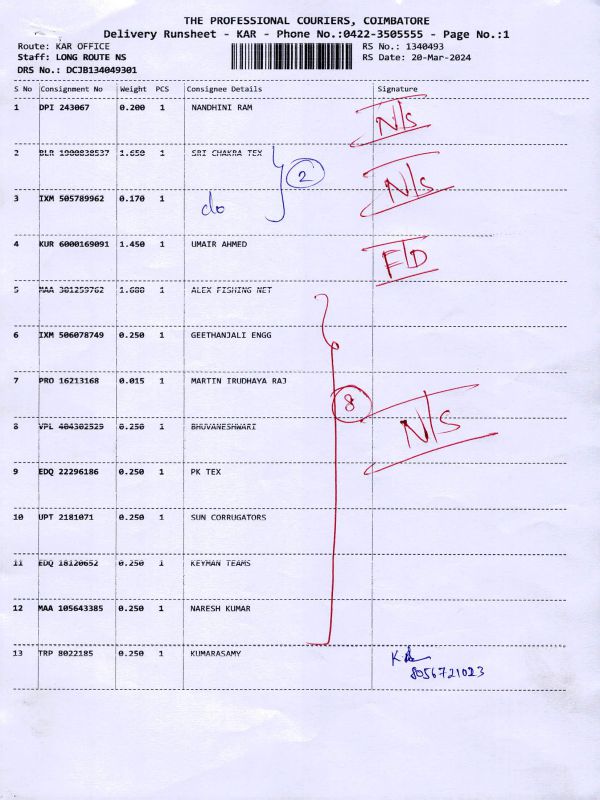 THE PROFESSIONAL COURIERS, COIMBATORE
Delivery Runsheet - KAR - Phone No.:0422-3505555 - Page No.:1
Route: KAR OFFICE RS No.: 1340493
Staff: LONG ROUTE NS RS Date: 20-Mar-2024
DRS No.: DCJB134049301
S No Consignment No Weight PCS Consignee Details Signature
1 DPI 243067 0.200 1 NANDHINI RAM N/S
2 BLR 1000838537 1.650 1 SRI CHAKRA TEX
2
3 IXM 505789962 0.170 1 do N/S
4 KUR 6000169091 1.450 1 UMAIR AHMED F/D
5 MAA 381259762 1.688 1 ALEX FISHING NET
6 IXM 506078749 0.250 1 GEETHANJALI ENGG
7 PRO 16213168 0.015 1 MARTIN IRUDHAYA RAJ
8
8 VPL 404302529 0.250 1 BHUVANESHWARI N/S
9 EDQ 22296186 0.250 1 PK TEX
10 UPT 2181071 0.250 1 SUN CORRUGATORS
11 EDQ 18120652 0.250 1 KEYMAN TEAMS
12 MAA 105643385 0.250 1 NARESH KUMAR
13 TRP 8022185 0.250 1 KUMARASAMY
8056721023